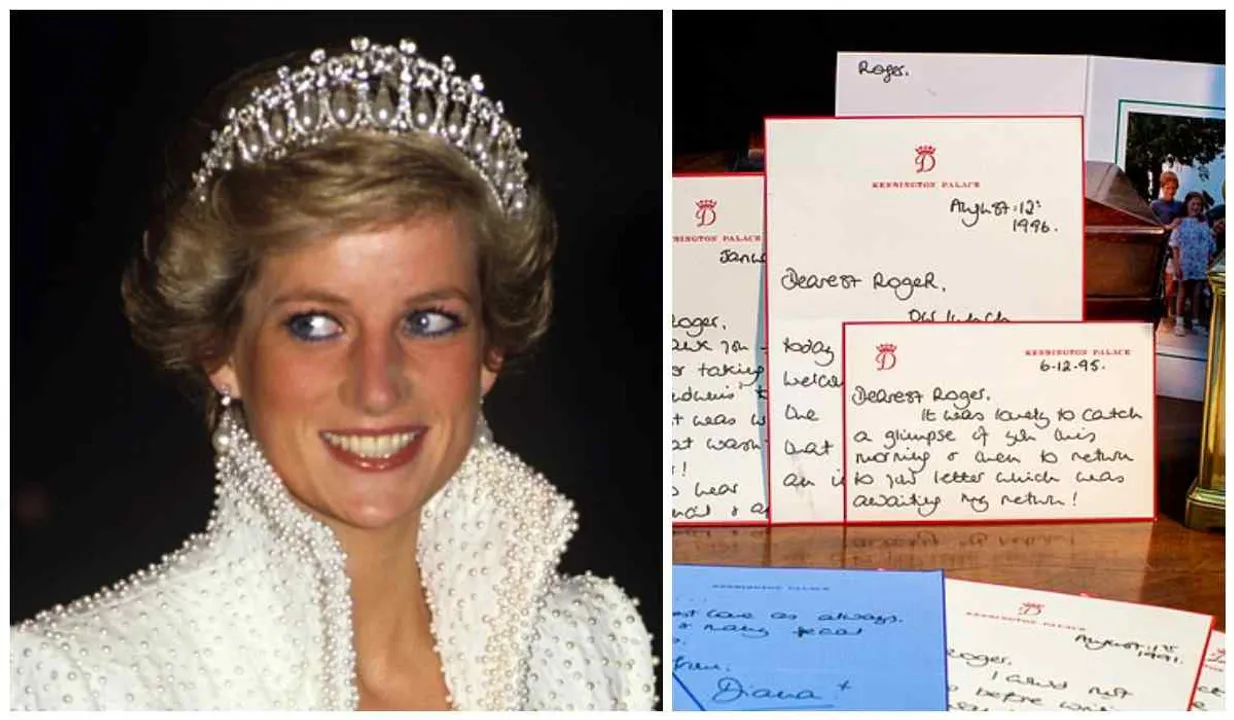 Roger.
D
KENSINGTON PALACE
August. 12th
1996.
Dearest Roger,
Our lunch
today
welco
the
that
am i
D
KENSINGTON PALACE
Janu
Roger,
thank you
for taking
t was w
at wasn
!
hear
& a
D
KENSINGTON PALACE
6-12-95.
Dearest Roger.
It was lovely to catch
a glimpse of you this
morning & then to return
to your letter which was
awaiting my return!
KENSINGTON PALACE
love as always.
& many
from.
Diana x
D
KENSINGTON PALACE
August. 1st
1991.
Roger.
I could not
before